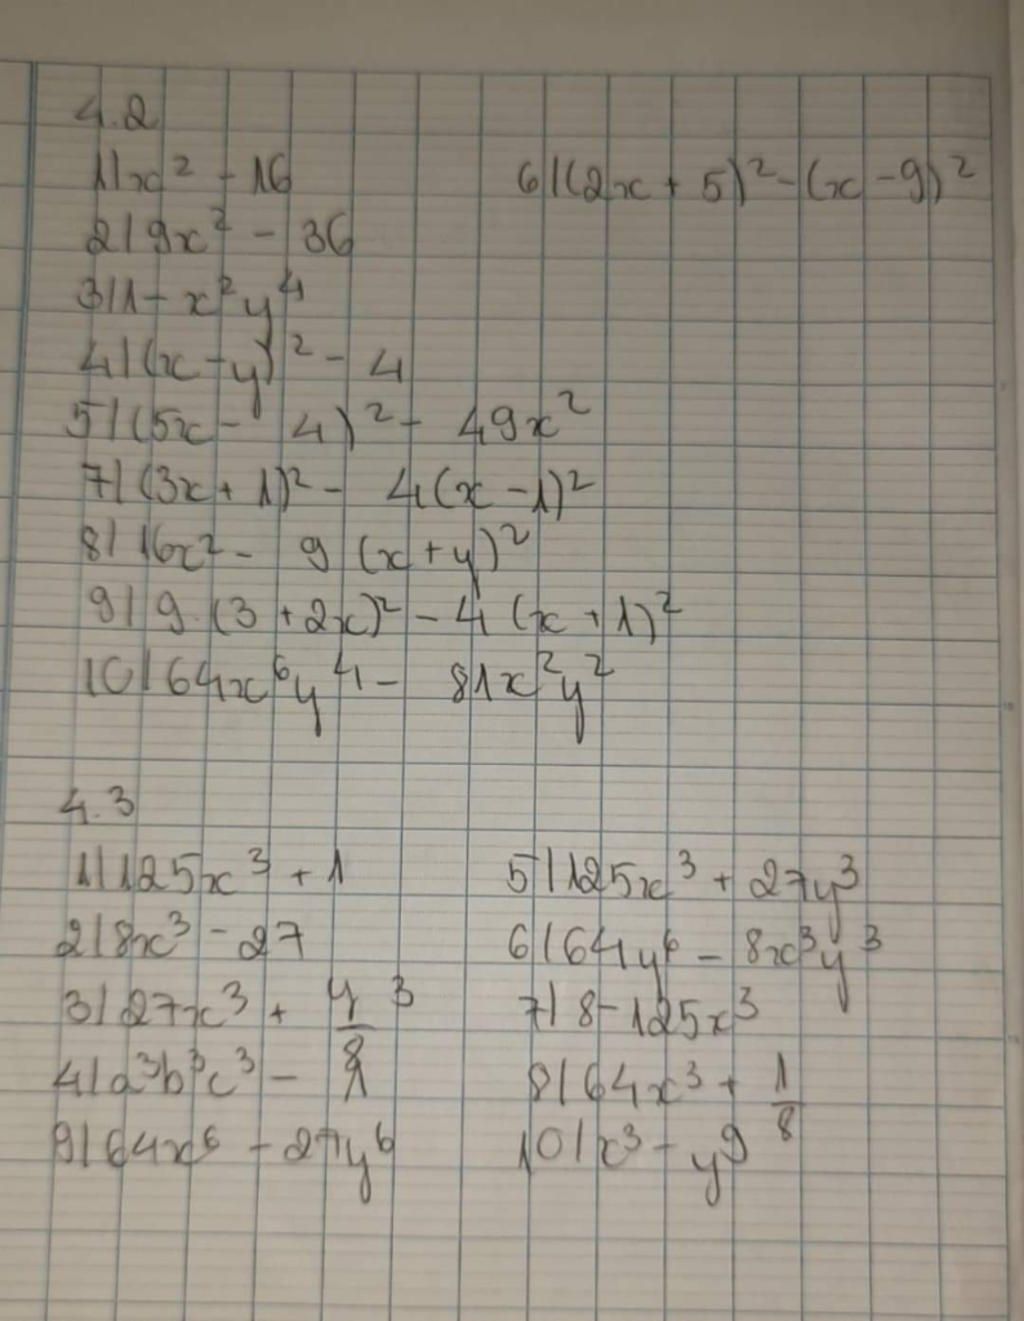 4.2
1) x² - 16
6) (2x + 5)² - (x - 9)²
2) 9x² - 36
3) 1 - x²y⁴
4) (x - y)² - 4
5) (5x - 4)² - 49x²
7) (3x + 1)² - 4(x - 1)²
8) 16x² - 9(x + y)²
9) 9(3 + 2x)² - 4(x + 1)²
10) 64x⁶y⁴ - 81x²y²
4.3
1) 125x³ + 1
5) 125x³ + 27y³
2) 8x³ - 27
6) 64y⁶ - 8x³y³
3) 27x³ + y³/8
7) 8 - 125x³
4) a³b³c³ - 1
8) 64x³ + 1/8
9) 64x⁶ - 27y⁶
10) x³ - y⁹